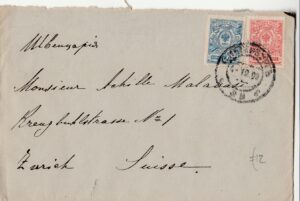 Швейцарія
Monsieur Achille Mala
Kreuzbühlstrasse No 1
Zurich Suisse.
£12